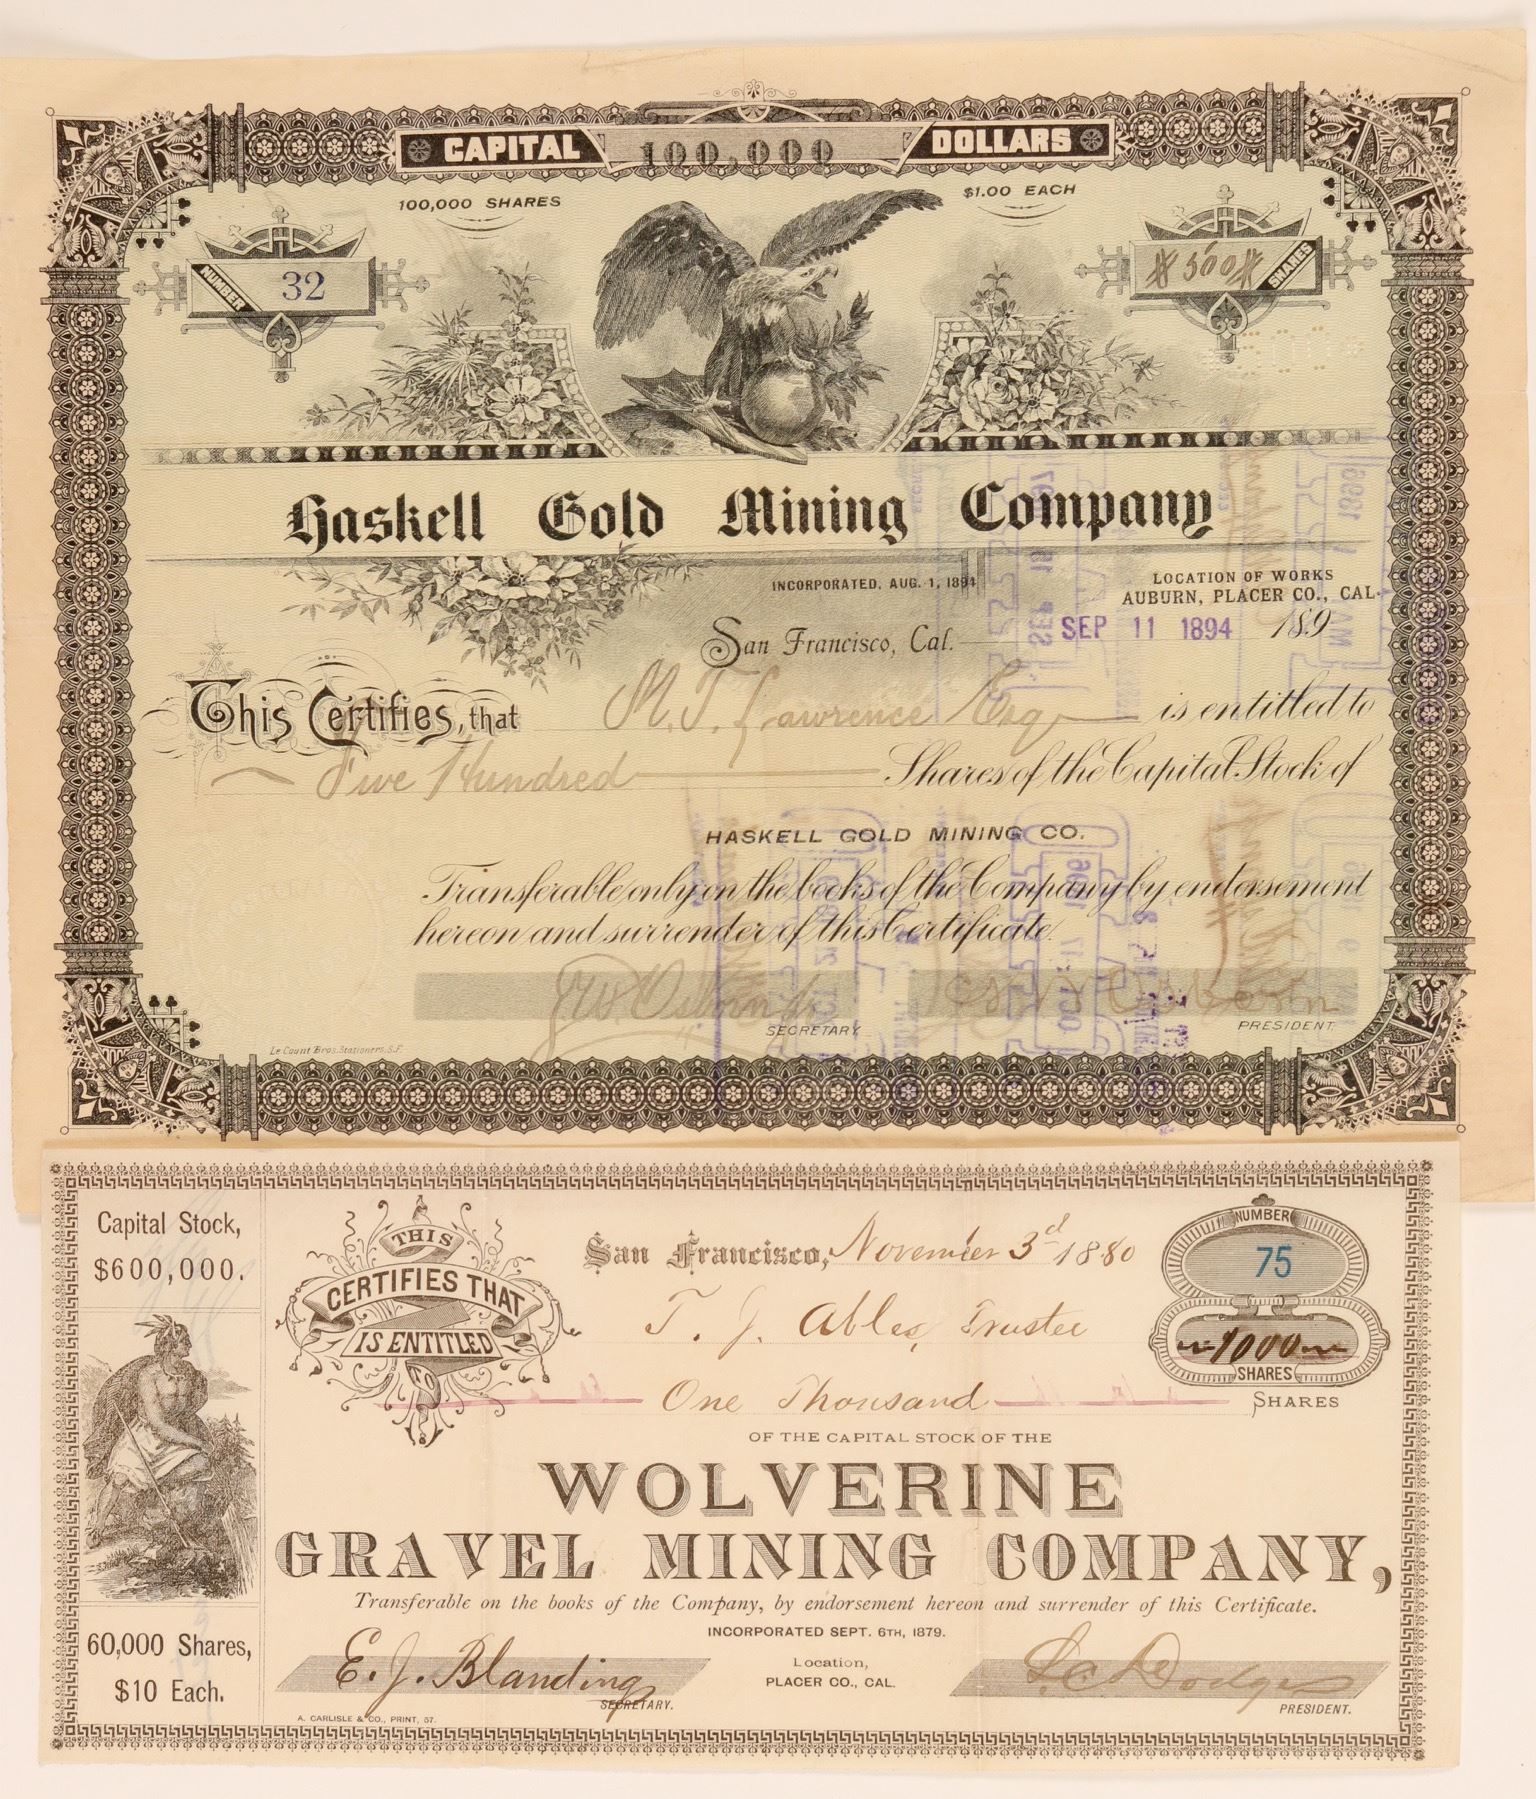 CAPITAL 100,000 DOLLARS
100,000 SHARES
$1.00 EACH
NUMBER 32
500 SHARES
Haskell Gold Mining Company
INCORPORATED, AUG. 1, 1894
LOCATION OF WORKS
AUBURN, PLACER CO., CAL.
San Francisco, Cal. SEP 11 1894 189
This Certifies, that M. T. Lawrence Esq is entitled to
Five Hundred Shares of the Capital Stock of
HASKELL GOLD MINING CO.
Transferable only on the books of the Company by endorsement
hereon and surrender of this Certificate.
SECRETARY
PRESIDENT
Le Count Bros. Stationers, S.F.
Capital Stock,
$600,000.
60,000 Shares,
$10 Each.
THIS
CERTIFIES THAT
IS ENTITLED
TO
San Francisco, November 3d 1880
NUMBER
75
1000
SHARES
T. J. Ables, Trustee
One Thousand SHARES
OF THE CAPITAL STOCK OF THE
WOLVERINE
GRAVEL MINING COMPANY,
Transferable on the books of the Company, by endorsement hereon and surrender of this Certificate.
INCORPORATED SEPT. 6TH, 1879.
Location,
PLACER CO., CAL.
E. J. Blanding
SECRETARY.
Dodge
PRESIDENT.
A. CARLISLE & CO., PRINT, 57.